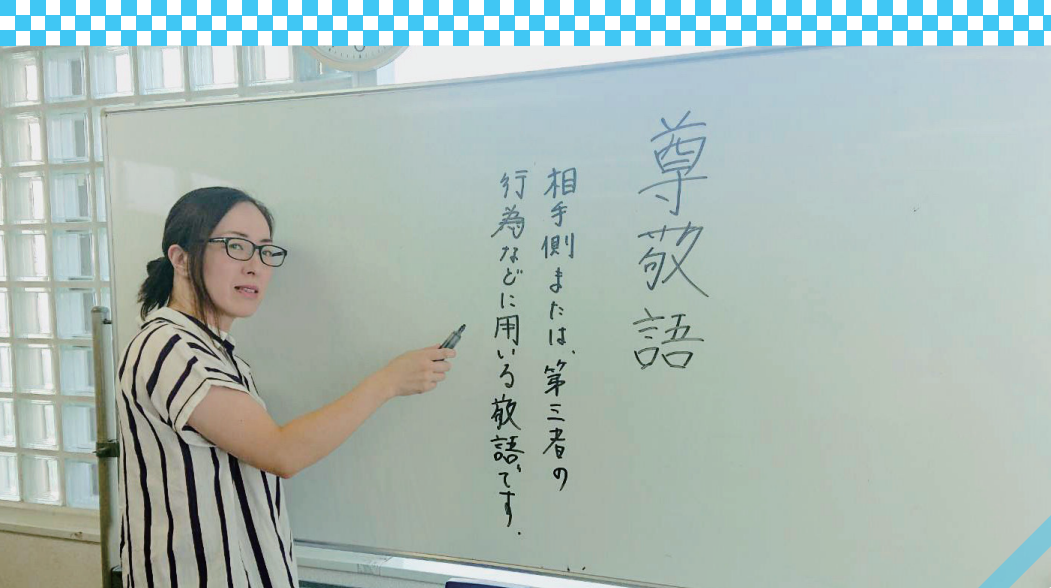 尊敬語
相手側または、第三者の
行為などに用いる敬語です.